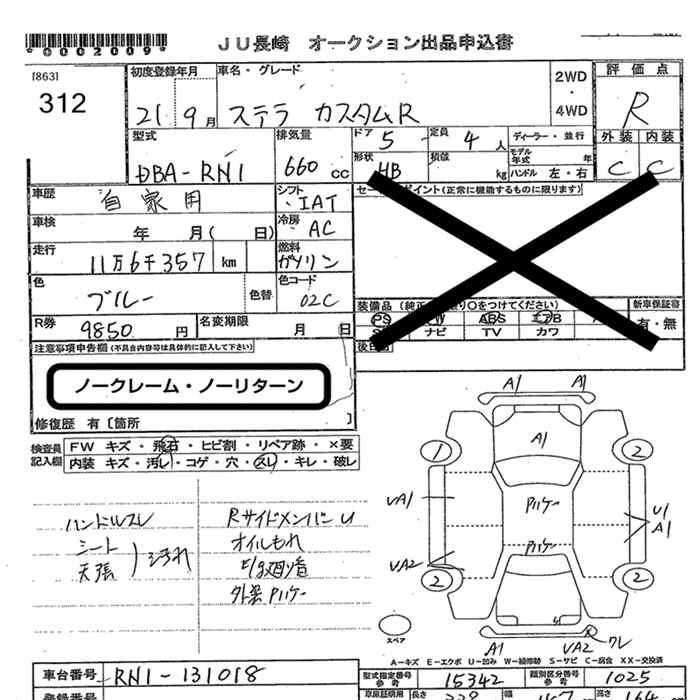 *0002009*
JU長崎 オークション出品申込書
[863]
312
初度登録年月
21 9月
車名・グレード
ステラ カスタムR
2WD
・
4WD
評価点
R
外装 内装
C C
型式
DBA-RN1
排気量
660 cc
ドア
5
定員
4人
ディーラー・並行
形状
HB
積載
kg
モデル年式 年
ハンドル 左・右
車歴
自家用
シフト
IAT
車検
年 月( 日)
冷房
AC
走行
11万6千357 km
燃料
ガソリン
色
ブルー
色替
色コード
02C
R券
9850 円
名変期限
月 日
ポイント(正常に機能するものに限ります)
装備品
○をつけてください)
PS
ABS エアB
ナビ TV カワ
新車保証書
有・無
注意事項申告欄(不具合内容等は具体的に記入して下さい)
ノークレーム・ノーリターン
修復歴 有〔箇所 〕
検査員記入欄
FW キズ・飛石・ヒビ割・リペア跡・×要
内装 キズ・汚レ・コゲ・穴・スレ・キレ・破レ
ハンドルスレ
シート
天張
汚れ
RサイドメンバーU
オイルもれ
E/g廻り音
外装Pハゲー
A1 A1
1 A1 2
UA1 Pハゲー U1
A1
Pハゲー
UA2
2 2
スペア
A1 UA2 ワレ
A-キズ E-エクボ U-凹み W-補修跡 S-サビ C-腐食 XX-交換済
車台番号
RN1-131018
型式指定番号
参考
15342
類別区分番号
参考
1025
登録番号
車庫証明用
長さ
高さ
164